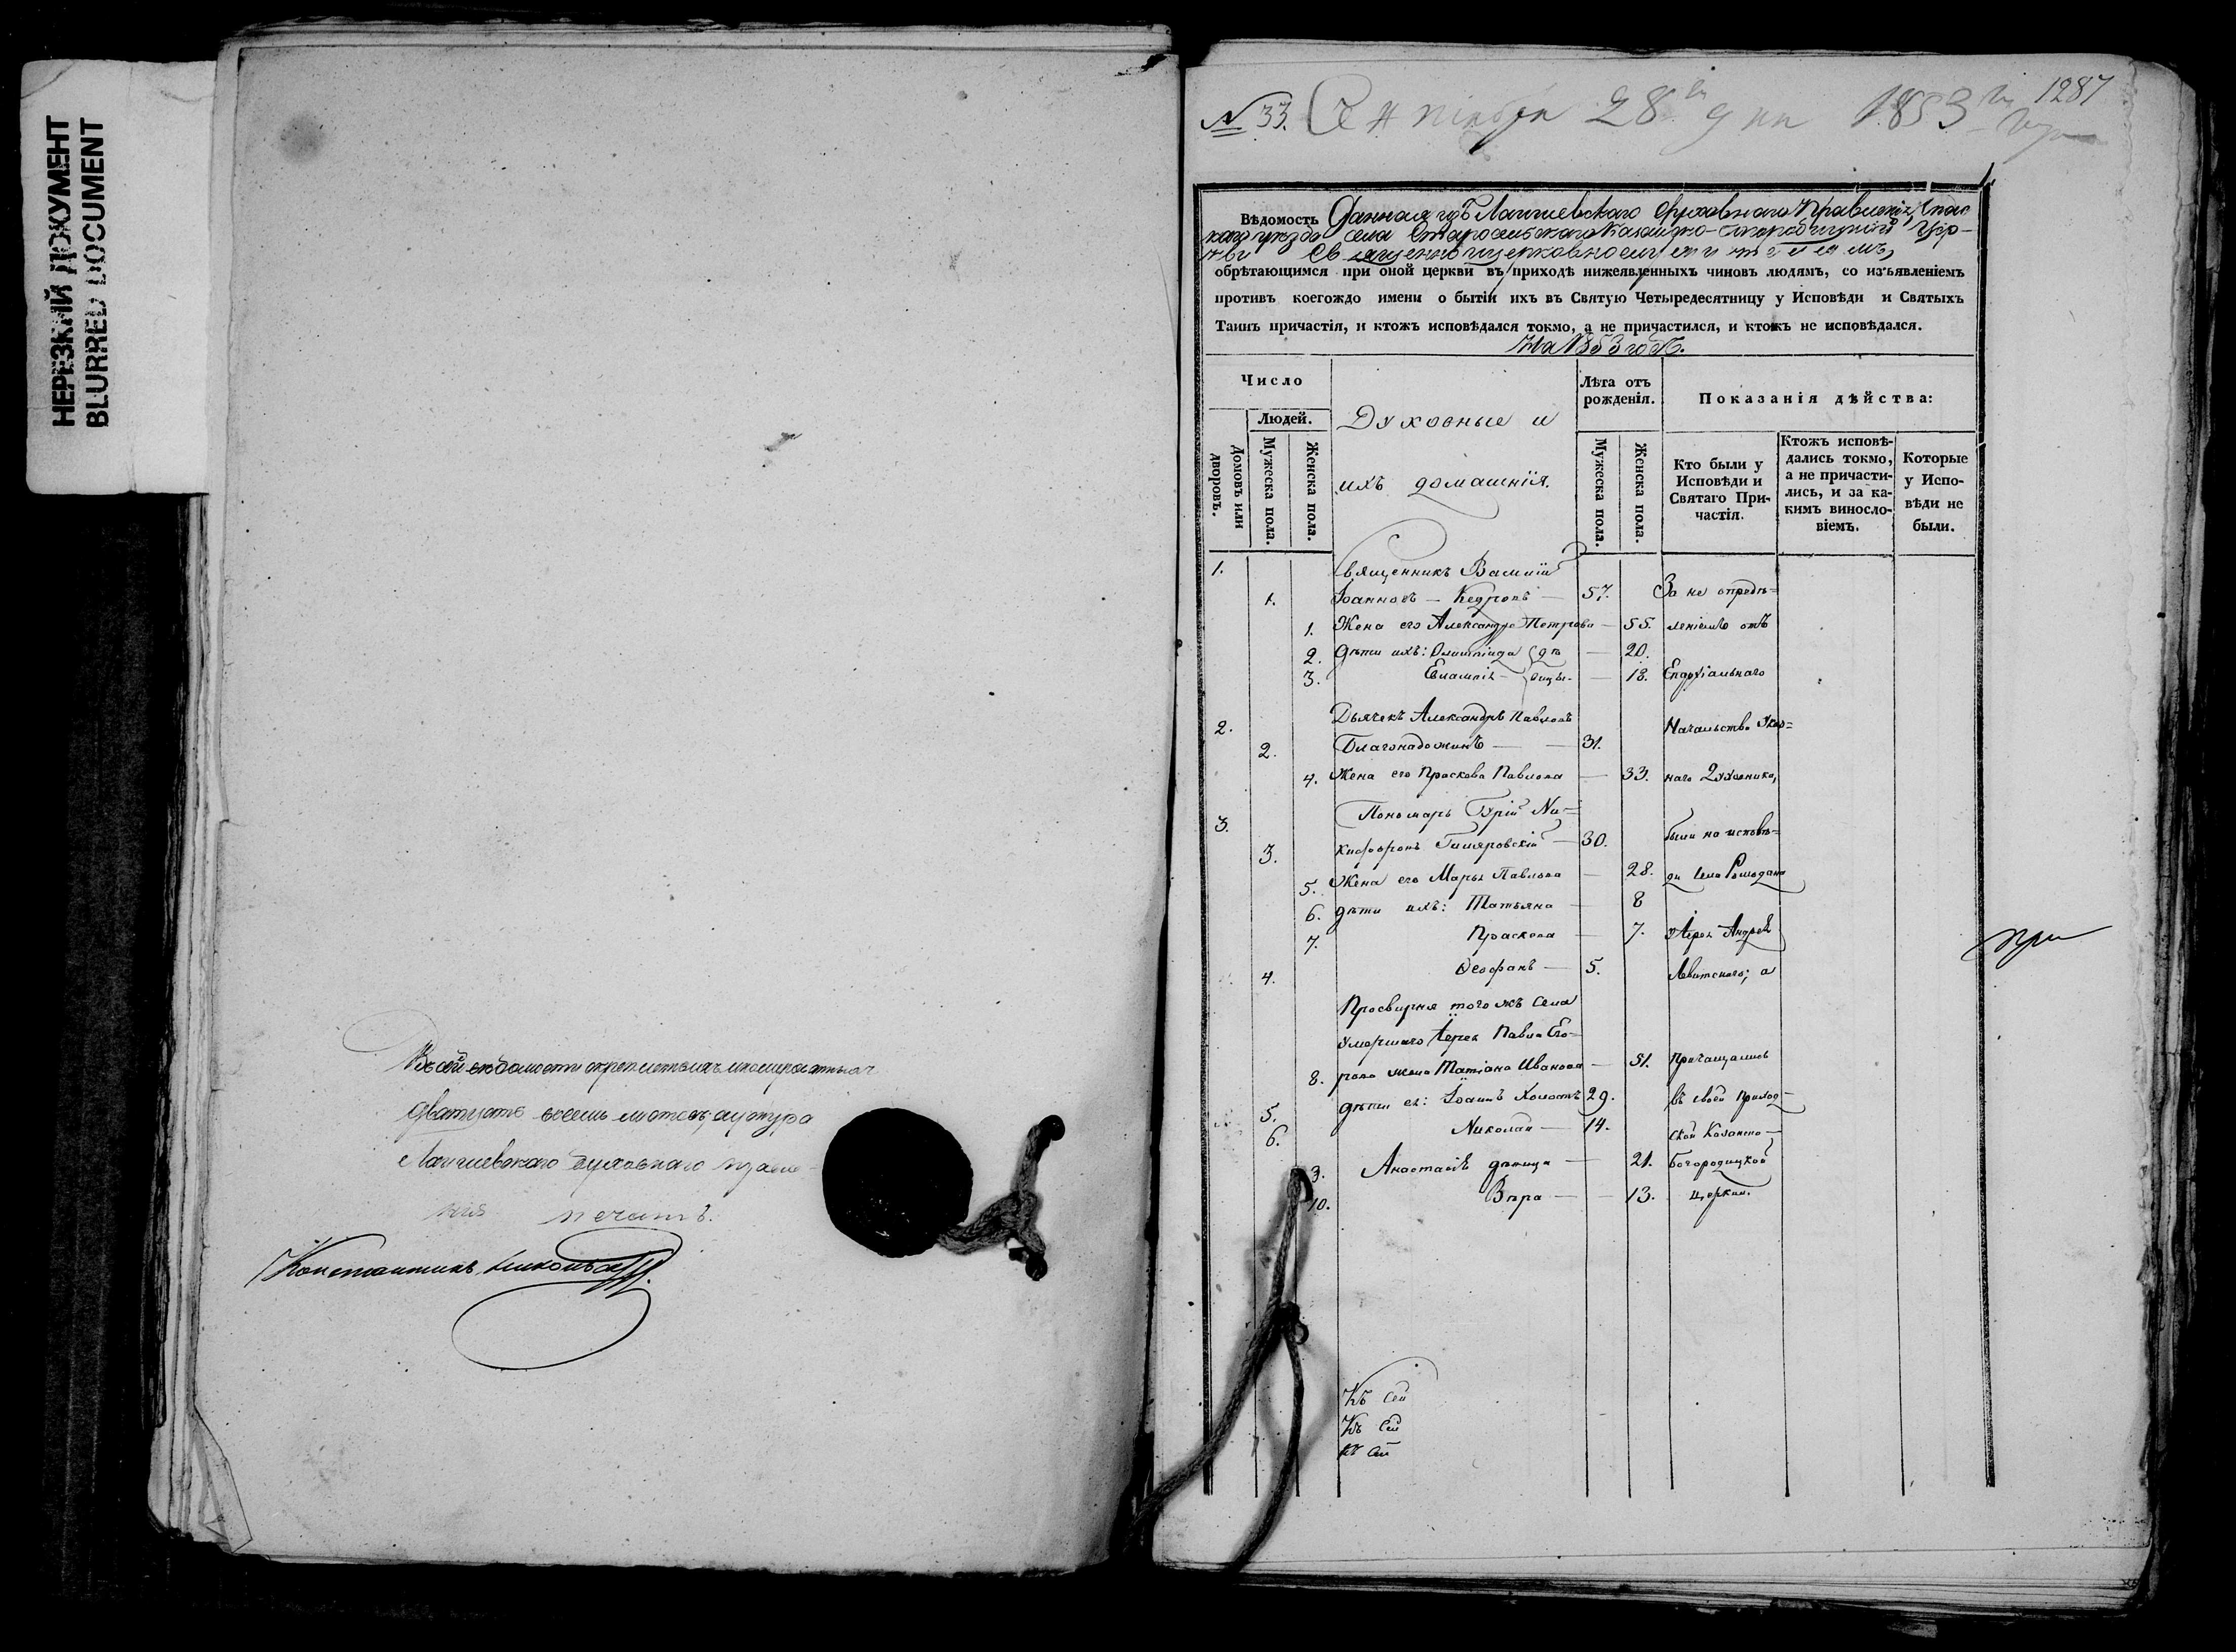 НЕРЕЗКИЙ ДОКУМЕНТ
BLURRED DOCUMENT
Въ сей вѣдомости
дватцать восемь листовъ
Лаишевскаго духовнаго правле-
нія печать.
Константинъ
№ 33. Сентября 28 го дня 1853 го года
1287
Вѣдомость Данная изъ Лаишевскаго Духовнаго Правленія, Спас
каго уѣзда села Церк-
ви Священноцерковнослужителямъ,
обрѣтающимся при оной церкви въ приходѣ нижеявленныхъ чиновъ людямъ, со изъявленіемъ
противъ коегождо имени о бытіи ихъ въ Святую Четыредесятницу у Исповѣди и Святыхъ
Таинъ причастія, и ктожъ исповѣдался токмо, а не причастился, и ктожъ не исповѣдался.
На 1853 годъ.
Число
Людей.
Домовъ или дворовъ.
Мужеска пола.
Женска пола.
Духовные и
ихъ домашнія.
Лѣта отъ
рожденія.
Мужеска пола.
Женска пола.
Показанія дѣйства:
Кто были у
Исповѣди и
Святаго При-
частія.
Ктожъ исповѣ-
дались токмо,
а не причасти-
лись, и за ка-
кимъ винослo-
віемъ.
Которые
у Испо-
вѣди не
были.
1. Священникъ Василій
1. Іоанновъ — Кедровъ — 57. За не опредѣ=
1. Жена его Александра Петрова — 55. леніемъ отъ
2. Дѣти ихъ: Олимпіада дѣ — 20.
3. Евлампія — вицы — 18. Епархіальнаго
2. Дьячекъ Александръ Павловъ Начальства
2. — 31.
4. Жена его Праскева Павлова — 33. наго Духовника,
3. Пономарь Гурій Ни=
3. кифоровъ Гиляровскій — 30. были на исповѣ=
5. Жена его Марья Павлова — 28. ди села
6. дѣти ихъ: Татьяна — 8
7. Праскева — 7. у Іерея Андрея
4. Ѳеофанъ — 5. Левитскаго; а
Просвирня того жъ села
умершаго Іерея Павла Его=
8. рова жена Татіана Иванова — 51. Причащались
5. дѣти ея: Іоаннъ Холостъ 29. въ своей Приход-
6. Николай — 14. ской Казанско-
9. Анастасія дѣвица — 21. Богородицкой
10. Вѣра — 13. Церкви.
при
Къ сей
Къ сей
къ сей